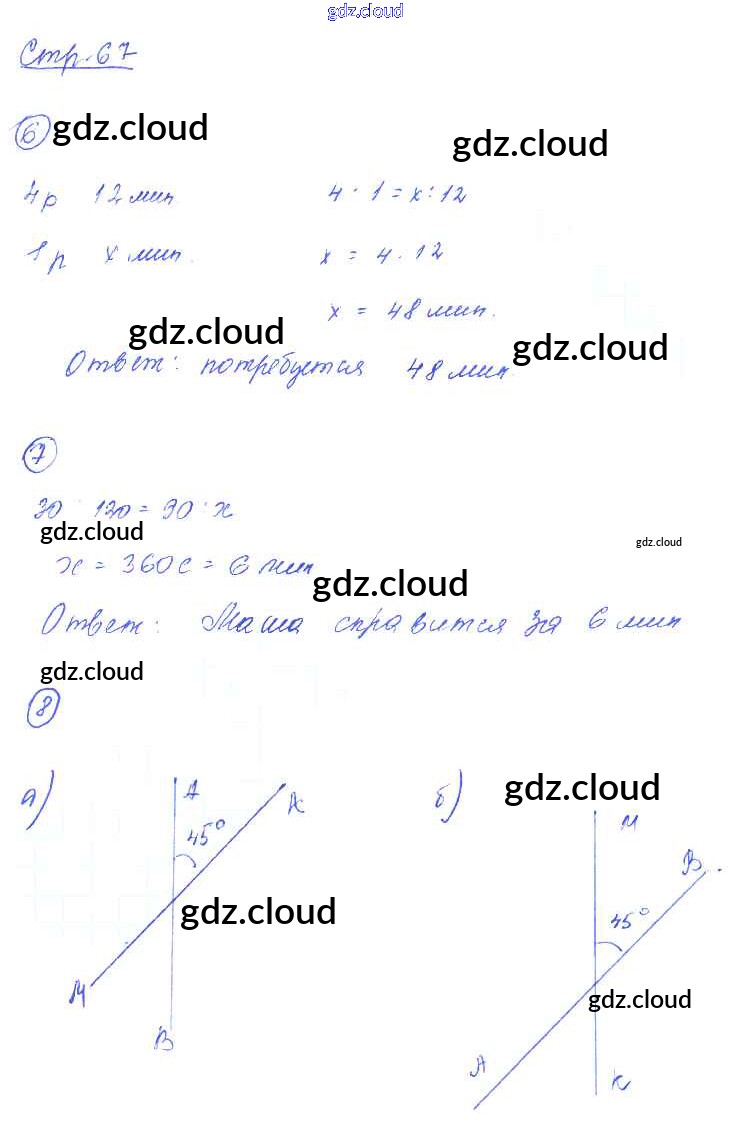 gdz.cloud
Стр. 67
6 gdz.cloud
gdz.cloud
4 р 12 мин 4 : 1 = x : 12
1 р x мин. x = 4 · 12
x = 48 мин.
gdz.cloud
gdz.cloud
Ответ: потребуется 48 мин.
7
30 : 120 = 90 : x
gdz.cloud
gdz.cloud
x = 360 с = 6 мин
gdz.cloud
Ответ: Маша справится за 6 мин
gdz.cloud
8
а) A K б) gdz.cloud
M
45°
B
gdz.cloud
45°
M
gdz.cloud
B
A
K